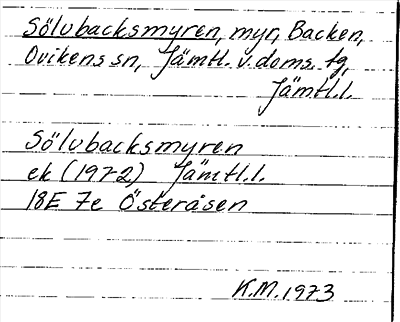 Sölvbacksmyren, myr, Backen,
Ovikens sn, Jämtl. v. doms. tg,
Jämtl.l.
Sölvbacksmyren
ek (1972) Jämtl.l.
18E 7e Österåsen
K.M. 1973